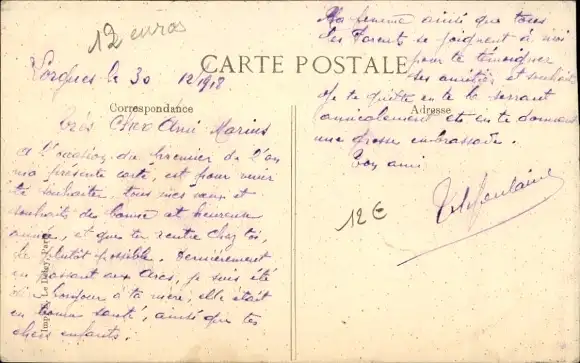 12 euros
Sorgues le 30 12/1918
CARTE POSTALE
Correspondance
Adresse
Très Cher Ami Marius
A l'ocasion du premier de l'an
ma présente carte, est pour venir
te souhaiter, tous mes vœux et
souhaits de bonne et heureuse
année, et que tu rentre chez toi,
le plutôt possible. Dernièrement
en passant aux Arcs, je suis été
dire bonjour à ta mère, elle était
en bonne santé, ainsi que tes
chers enfants.
Ma femme ainsi que tous
les Parents se joignent à moi
pour te témoigner
ses amitiés et souhaits
Je te quitte en te la serrant
amicalement et en te donnant
une grosse embrassade.
Ton ami
12 €
Imp. Le Deley, Paris